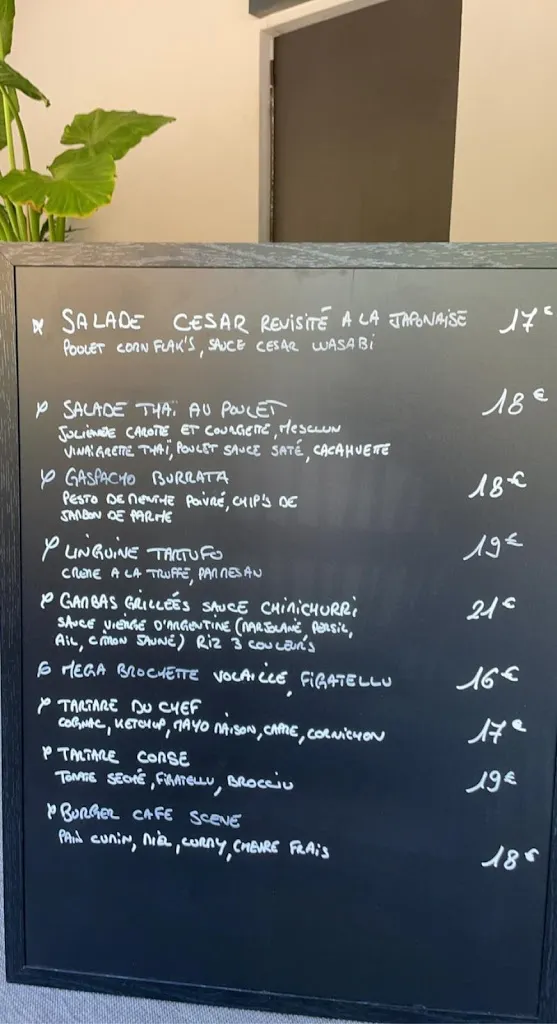 SALADE CESAR REVISITÉ A LA JAPONAISE 17€
POULET CORN FLAK'S, SAUCE CESAR WASABI
SALADE THAÏ AU POULET 18€
JULIENNE CAROTTE ET COURGETTE, MESCLUN
VINAIGRETTE THAÏ, POULET SAUCE SATÉ, CACAHUETTE
GASPACHO BURRATA 18€
PESTO DE MENTHE POIVRÉ, CHIP'S DE
JAMBON DE PARME
LINGUINE TARTUFO 19€
CREME A LA TRUFFE, PARMESAN
GAMBAS GRILLÉES SAUCE CHIMICHURRI 21€
SAUCE VIERGE D'ARGENTINE (MARJOLAINE, PERSIL,
AIL, CITRON JAUNE) RIZ 3 COULEURS
MEGA BROCHETTE VOLAILLE, FIGATELLU 16€
TARTARE DU CHEF 17€
COGNAC, KETCHUP, MAYO MAISON, CAPRE, CORNICHON
TARTARE CORSE 19€
TOMATE SECHÉ, FIGATELLU, BROCCIU
BURGER CAFE SCENE
PAIN CUMIN, MIEL, CURRY, CHEVRE FRAIS 18€